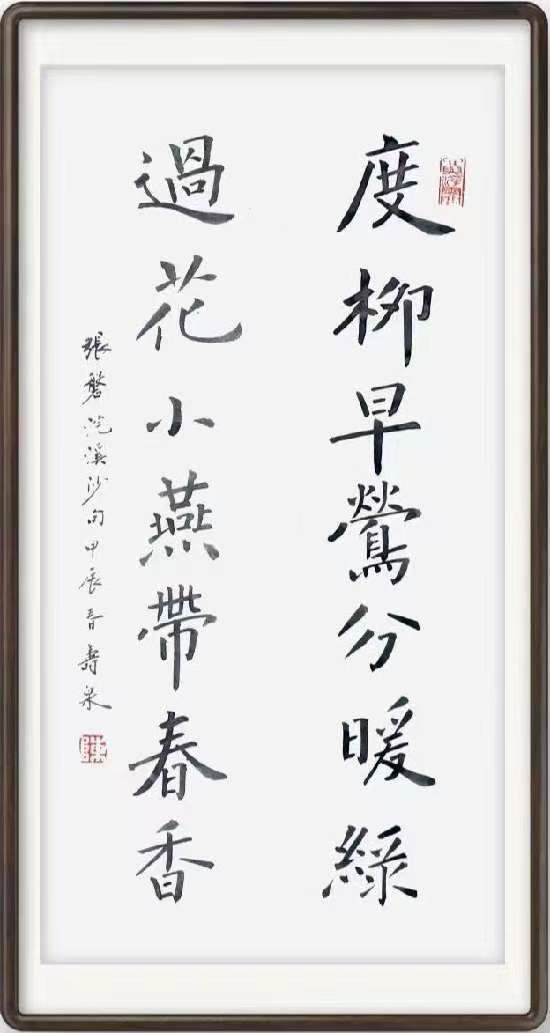 度柳早鶯分暖綠
過花小燕帶春香
張磐浣溪沙句甲辰春壽泉
陳